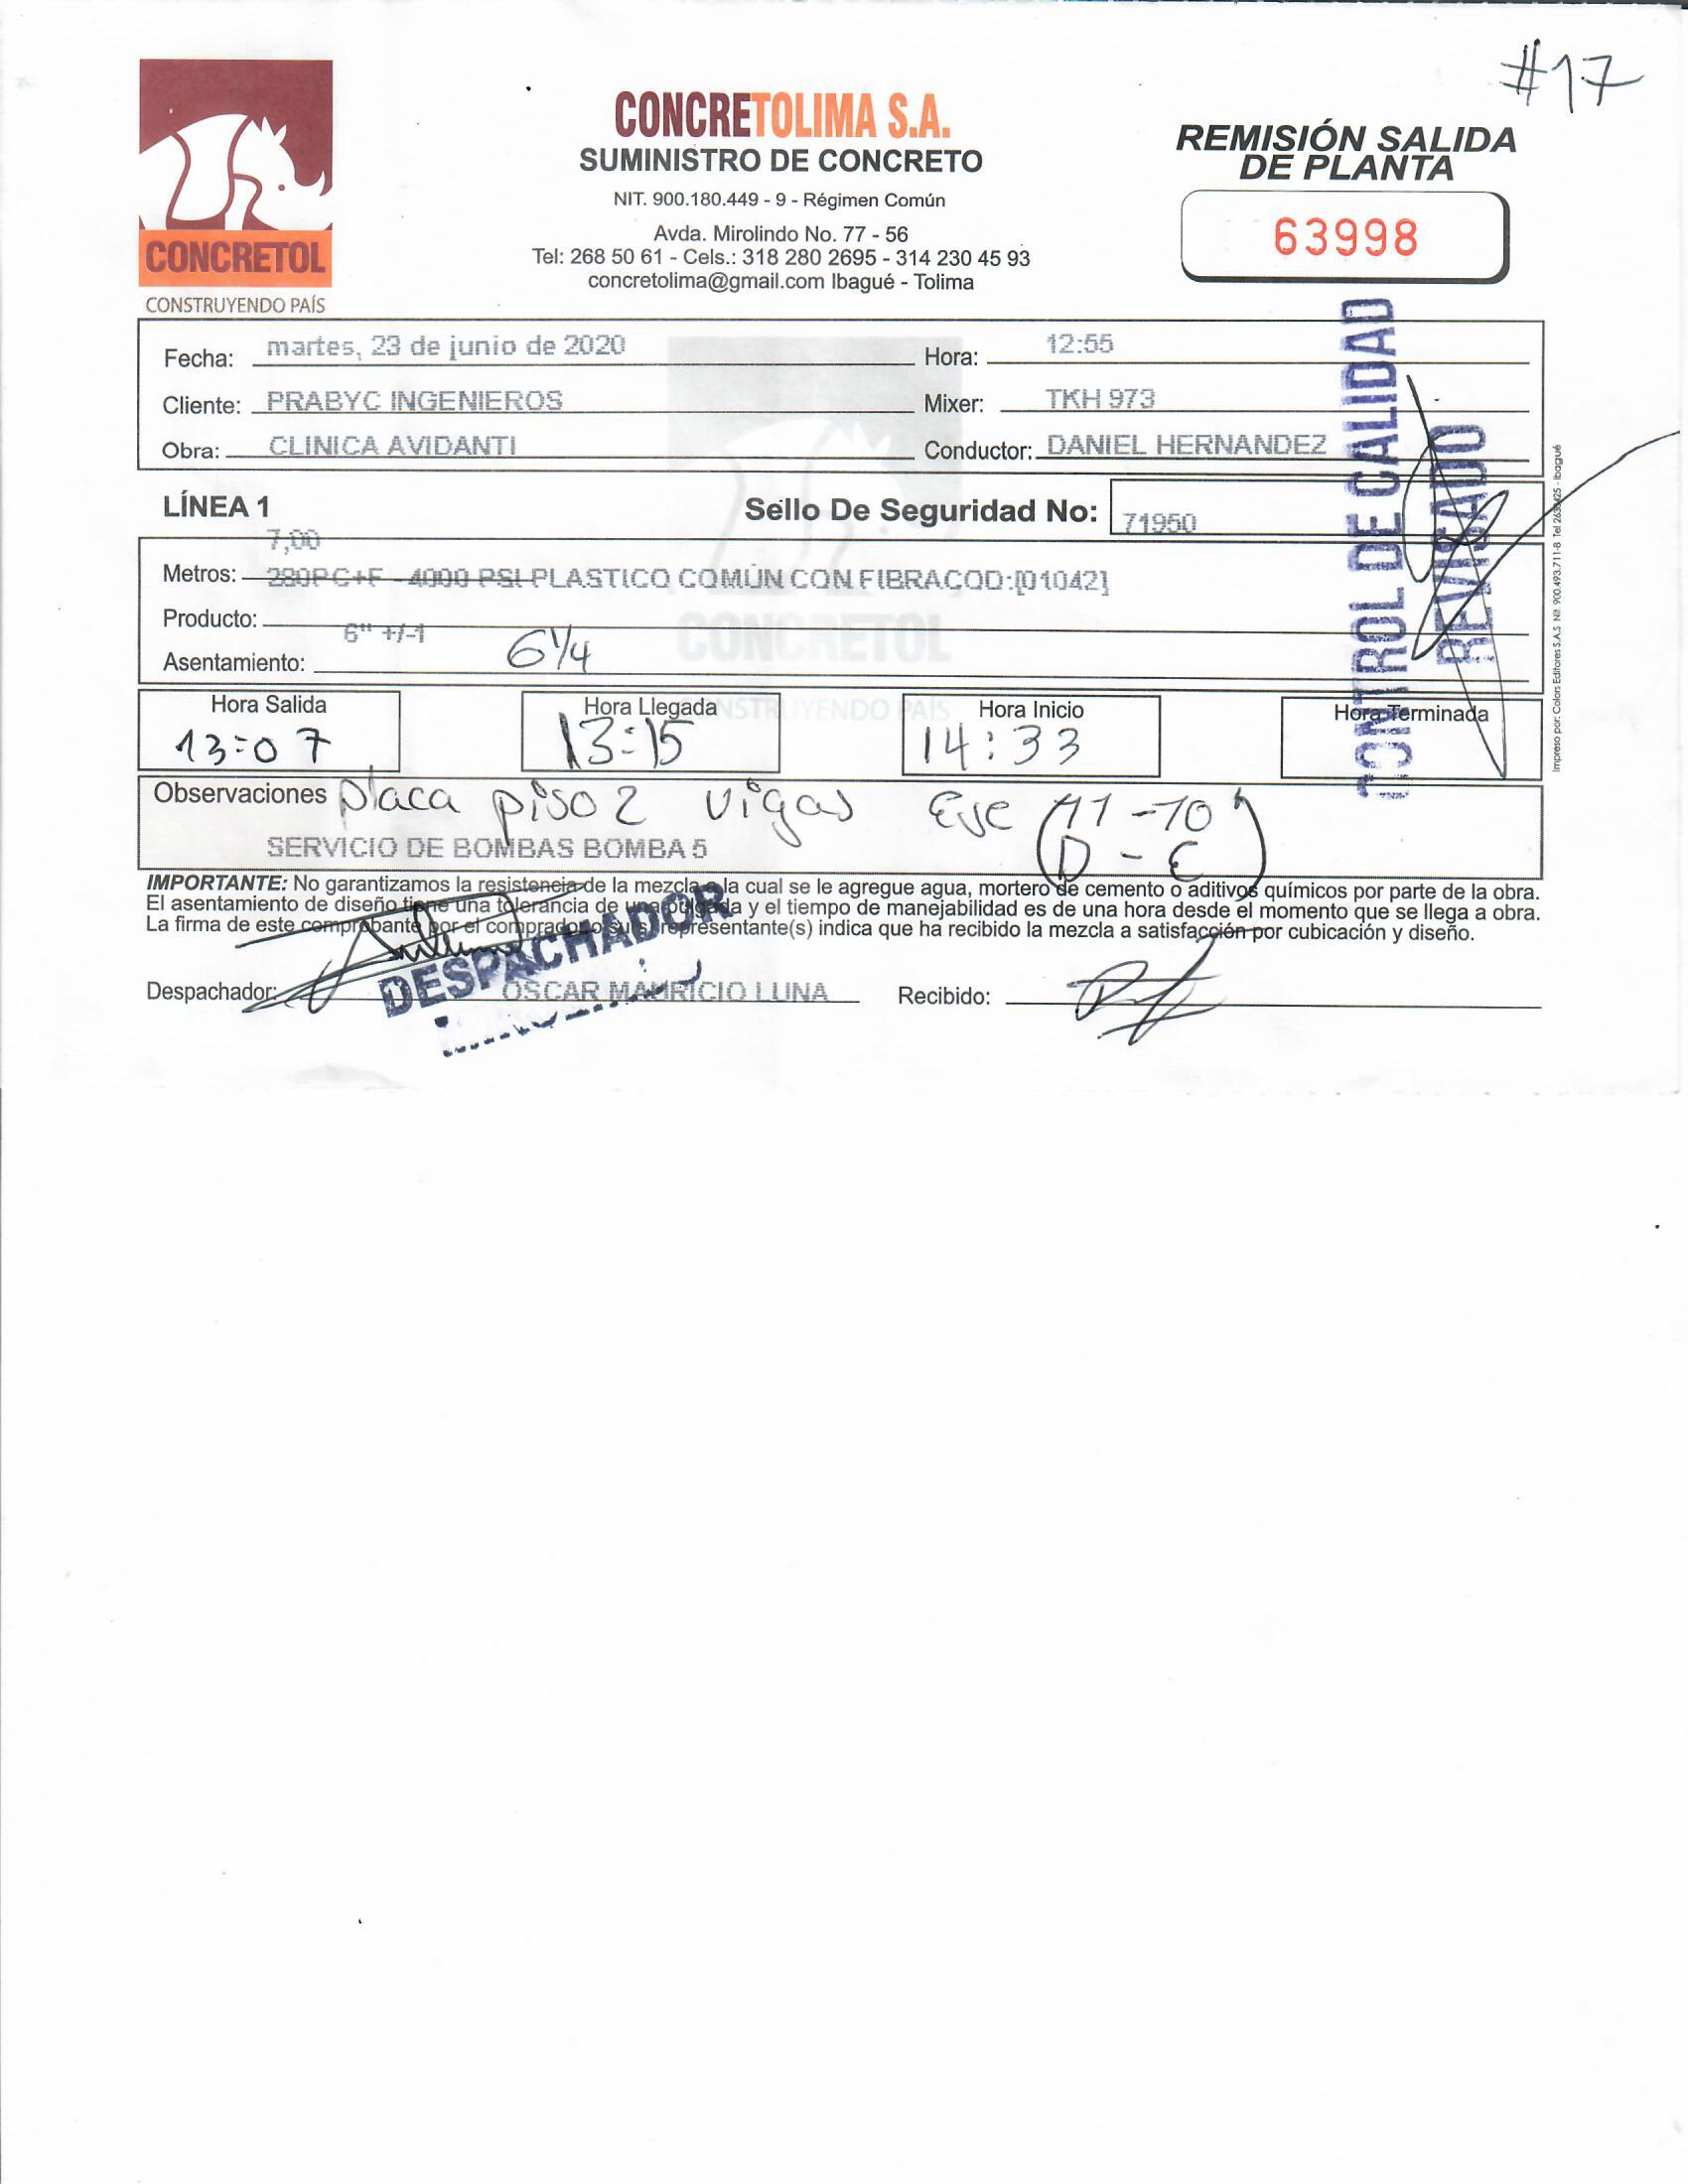 #17
CONCRETOL
CONSTRUYENDO PAÍS
CONCRETOLIMA S.A.
SUMINISTRO DE CONCRETO
NIT. 900.180.449 - 9 - Régimen Común
Avda. Mirolindo No. 77 - 56
Tel: 268 50 61 - Cels.: 318 280 2695 - 314 230 45 93
concretolima@gmail.com Ibagué - Tolima
REMISIÓN SALIDA
DE PLANTA
63998
Fecha: martes, 23 de junio de 2020 Hora: 12:55
Cliente: PRABYC INGENIEROS Mixer: TKH 973
Obra: CLINICA AVIDANTI Conductor: DANIEL HERNANDEZ
LÍNEA 1 Sello De Seguridad No: 71950
7,00
Metros: 280PC+F - 4000 PSI PLASTICO COMÚN CON FIBRACOD:[01042]
Producto:
6" +/-1
Asentamiento: 6 1/4
CONCRETOL
CONSTRUYENDO PAÍS
Hora Salida Hora Llegada Hora Inicio Hora Terminada
13:07 13:15 14:33
Observaciones placa piso 2 vigas Eje (11-10
D - E)
SERVICIO DE BOMBAS BOMBA 5
IMPORTANTE: No garantizamos la resistencia de la mezcla a la cual se le agregue agua, mortero de cemento o aditivos químicos por parte de la obra.
El asentamiento de diseño tiene una tolerancia de una pulgada y el tiempo de manejabilidad es de una hora desde el momento que se llega a obra.
La firma de este comprobante por el comprador o su(s) representante(s) indica que ha recibido la mezcla a satisfacción por cubicación y diseño.
Despachador: OSCAR MAURICIO LUNA Recibido:
DESPACHADOR
CONTROL DE CALIDAD
REVISADO
Impreso por: Colors Editores S.A.S Nit. 900.493.711-8 Tel